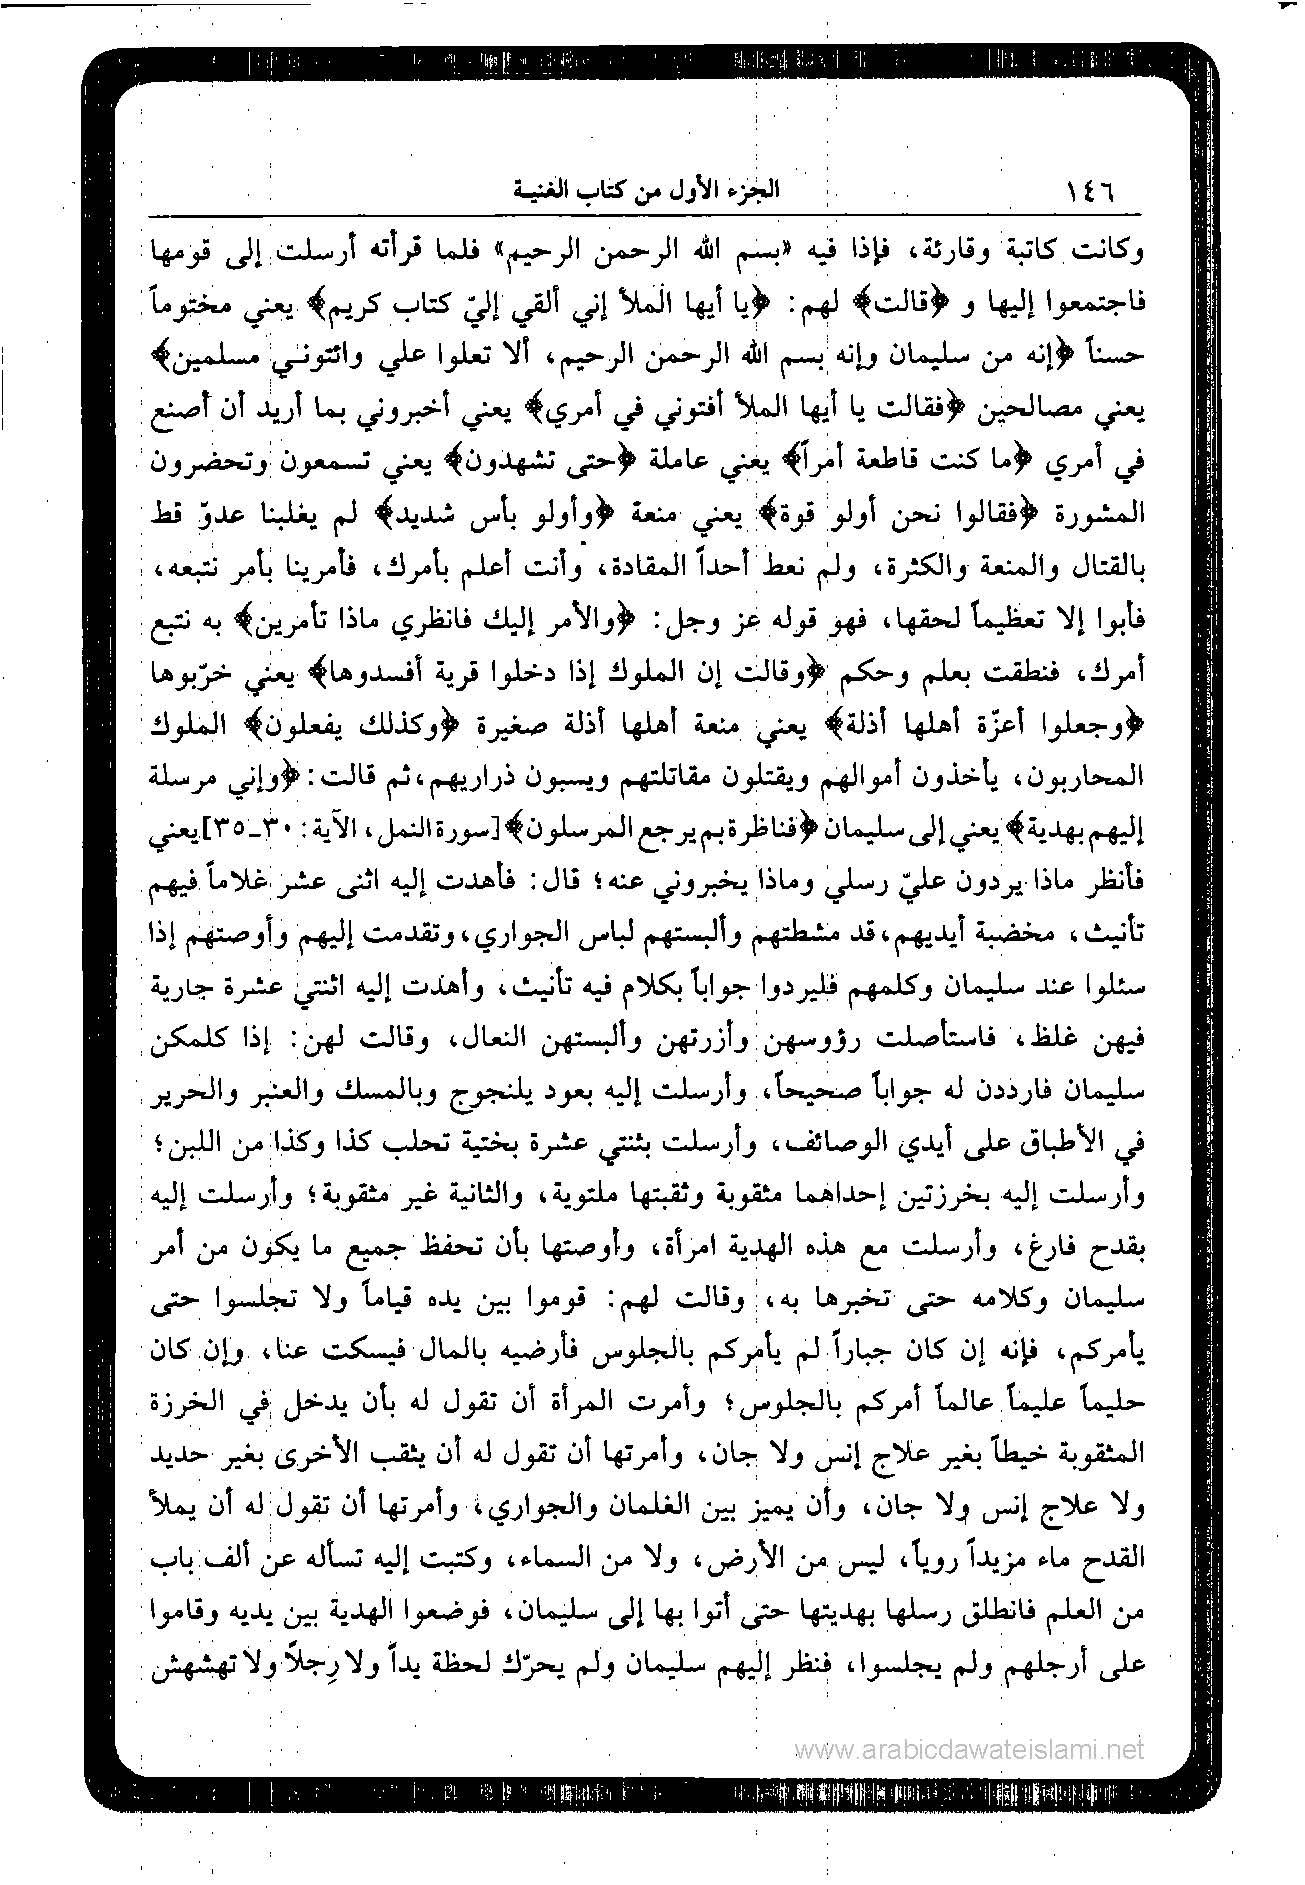 ١٤٦ الجزء الأول من كتاب الغنية
وكانت كاتبة وقارئة، فإذا فيه «بسم الله الرحمن الرحيم» فلما قرأته أرسلت إلى قومها
فاجتمعوا إليها و ﴿قالت﴾ لهم: ﴿يا أيها الملأ إني ألقي إليّ كتاب كريم﴾ يعني مختوماً
حسناً ﴿إنه من سليمان وإنه بسم الله الرحمن الرحيم، ألا تعلوا علي وائتوني مسلمين﴾
يعني مصالحين ﴿فقالت يا أيها الملأ أفتوني في أمري﴾ يعني أخبروني بما أريد أن أصنع
في أمري ﴿ما كنت قاطعة أمراً﴾ يعني عاملة ﴿حتى تشهدون﴾ يعني تسمعون وتحضرون
المشورة ﴿فقالوا نحن أولو قوة﴾ يعني منعة ﴿وأولو بأس شديد﴾ لم يغلبنا عدوّ قط
بالقتال والمنعة والكثرة، ولم نعط أحداً المقادة، وأنت أعلم بأمرك، فأمرينا بأمر نتبعه،
فأبوا إلا تعظيماً لحقها، فهو قوله عز وجل: ﴿والأمر إليك فانظري ماذا تأمرين﴾ به نتبع
أمرك، فنطقت بعلم وحكم ﴿وقالت إن الملوك إذا دخلوا قرية أفسدوها﴾ يعني خرّبوها
﴿وجعلوا أعزّة أهلها أذلة﴾ يعني منعة أهلها أذلة صغيرة ﴿وكذلك يفعلون﴾ الملوك
المحاربون، يأخذون أموالهم ويقتلون مقاتلتهم ويسبون ذراريهم، ثم قالت: ﴿وإني مرسلة
إليهم بهدية﴾ يعني إلى سليمان ﴿فناظرة بم يرجع المرسلون﴾ [سورة النمل، الآية: ٣٠-٣٥] يعني
فأنظر ماذا يردون عليّ رسلي وماذا يخبروني عنه؛ قال: فأهدت إليه اثنى عشر غلاماً فيهم
تأنيث، مخضبة أيديهم، قد مشطتهم وألبستهم لباس الجواري، وتقدمت إليهم وأوصتهم إذا
سئلوا عند سليمان وكلمهم فليردوا جواباً بكلام فيه تأنيث، وأهدت إليه اثنتي عشرة جارية
فيهن غلظ، فاستأصلت رؤوسهن وأزرتهن وألبستهن النعال، وقالت لهن: إذا كلمكن
سليمان فارددن له جواباً صحيحاً، وأرسلت إليه بعود يلنجوج وبالمسك والعنبر والحرير
في الأطباق على أيدي الوصائف، وأرسلت بثنتي عشرة بختية تحلب كذا وكذا من اللبن؛
وأرسلت إليه بخرزتين إحداهما مثقوبة وثقبتها ملتوية، والثانية غير مثقوبة؛ وأرسلت إليه
بقدح فارغ، وأرسلت مع هذه الهدية امرأة، وأوصتها بأن تحفظ جميع ما يكون من أمر
سليمان وكلامه حتى تخبرها به، وقالت لهم: قوموا بين يده قياماً ولا تجلسوا حتى
يأمركم، فإنه إن كان جباراً لم يأمركم بالجلوس فأرضيه بالمال فيسكت عنا، وإن كان
حليماً عليماً عالماً أمركم بالجلوس؛ وأمرت المرأة أن تقول له بأن يدخل في الخرزة
المثقوبة خيطاً بغير علاج إنس ولا جان، وأمرتها أن تقول له أن يثقب الأخرى بغير حديد
ولا علاج إنس ولا جان، وأن يميز بين الغلمان والجواري، وأمرتها أن تقول له أن يملأ
القدح ماء مزيداً روياً، ليس من الأرض، ولا من السماء، وكتبت إليه تسأله عن ألف باب
من العلم فانطلق رسلها بهديتها حتى أتوا بها إلى سليمان، فوضعوا الهدية بين يديه وقاموا
على أرجلهم ولم يجلسوا، فنظر إليهم سليمان ولم يحرّك لحظة يداً ولا رِجلاً ولا تهشهش
www.arabicdawateislami.net